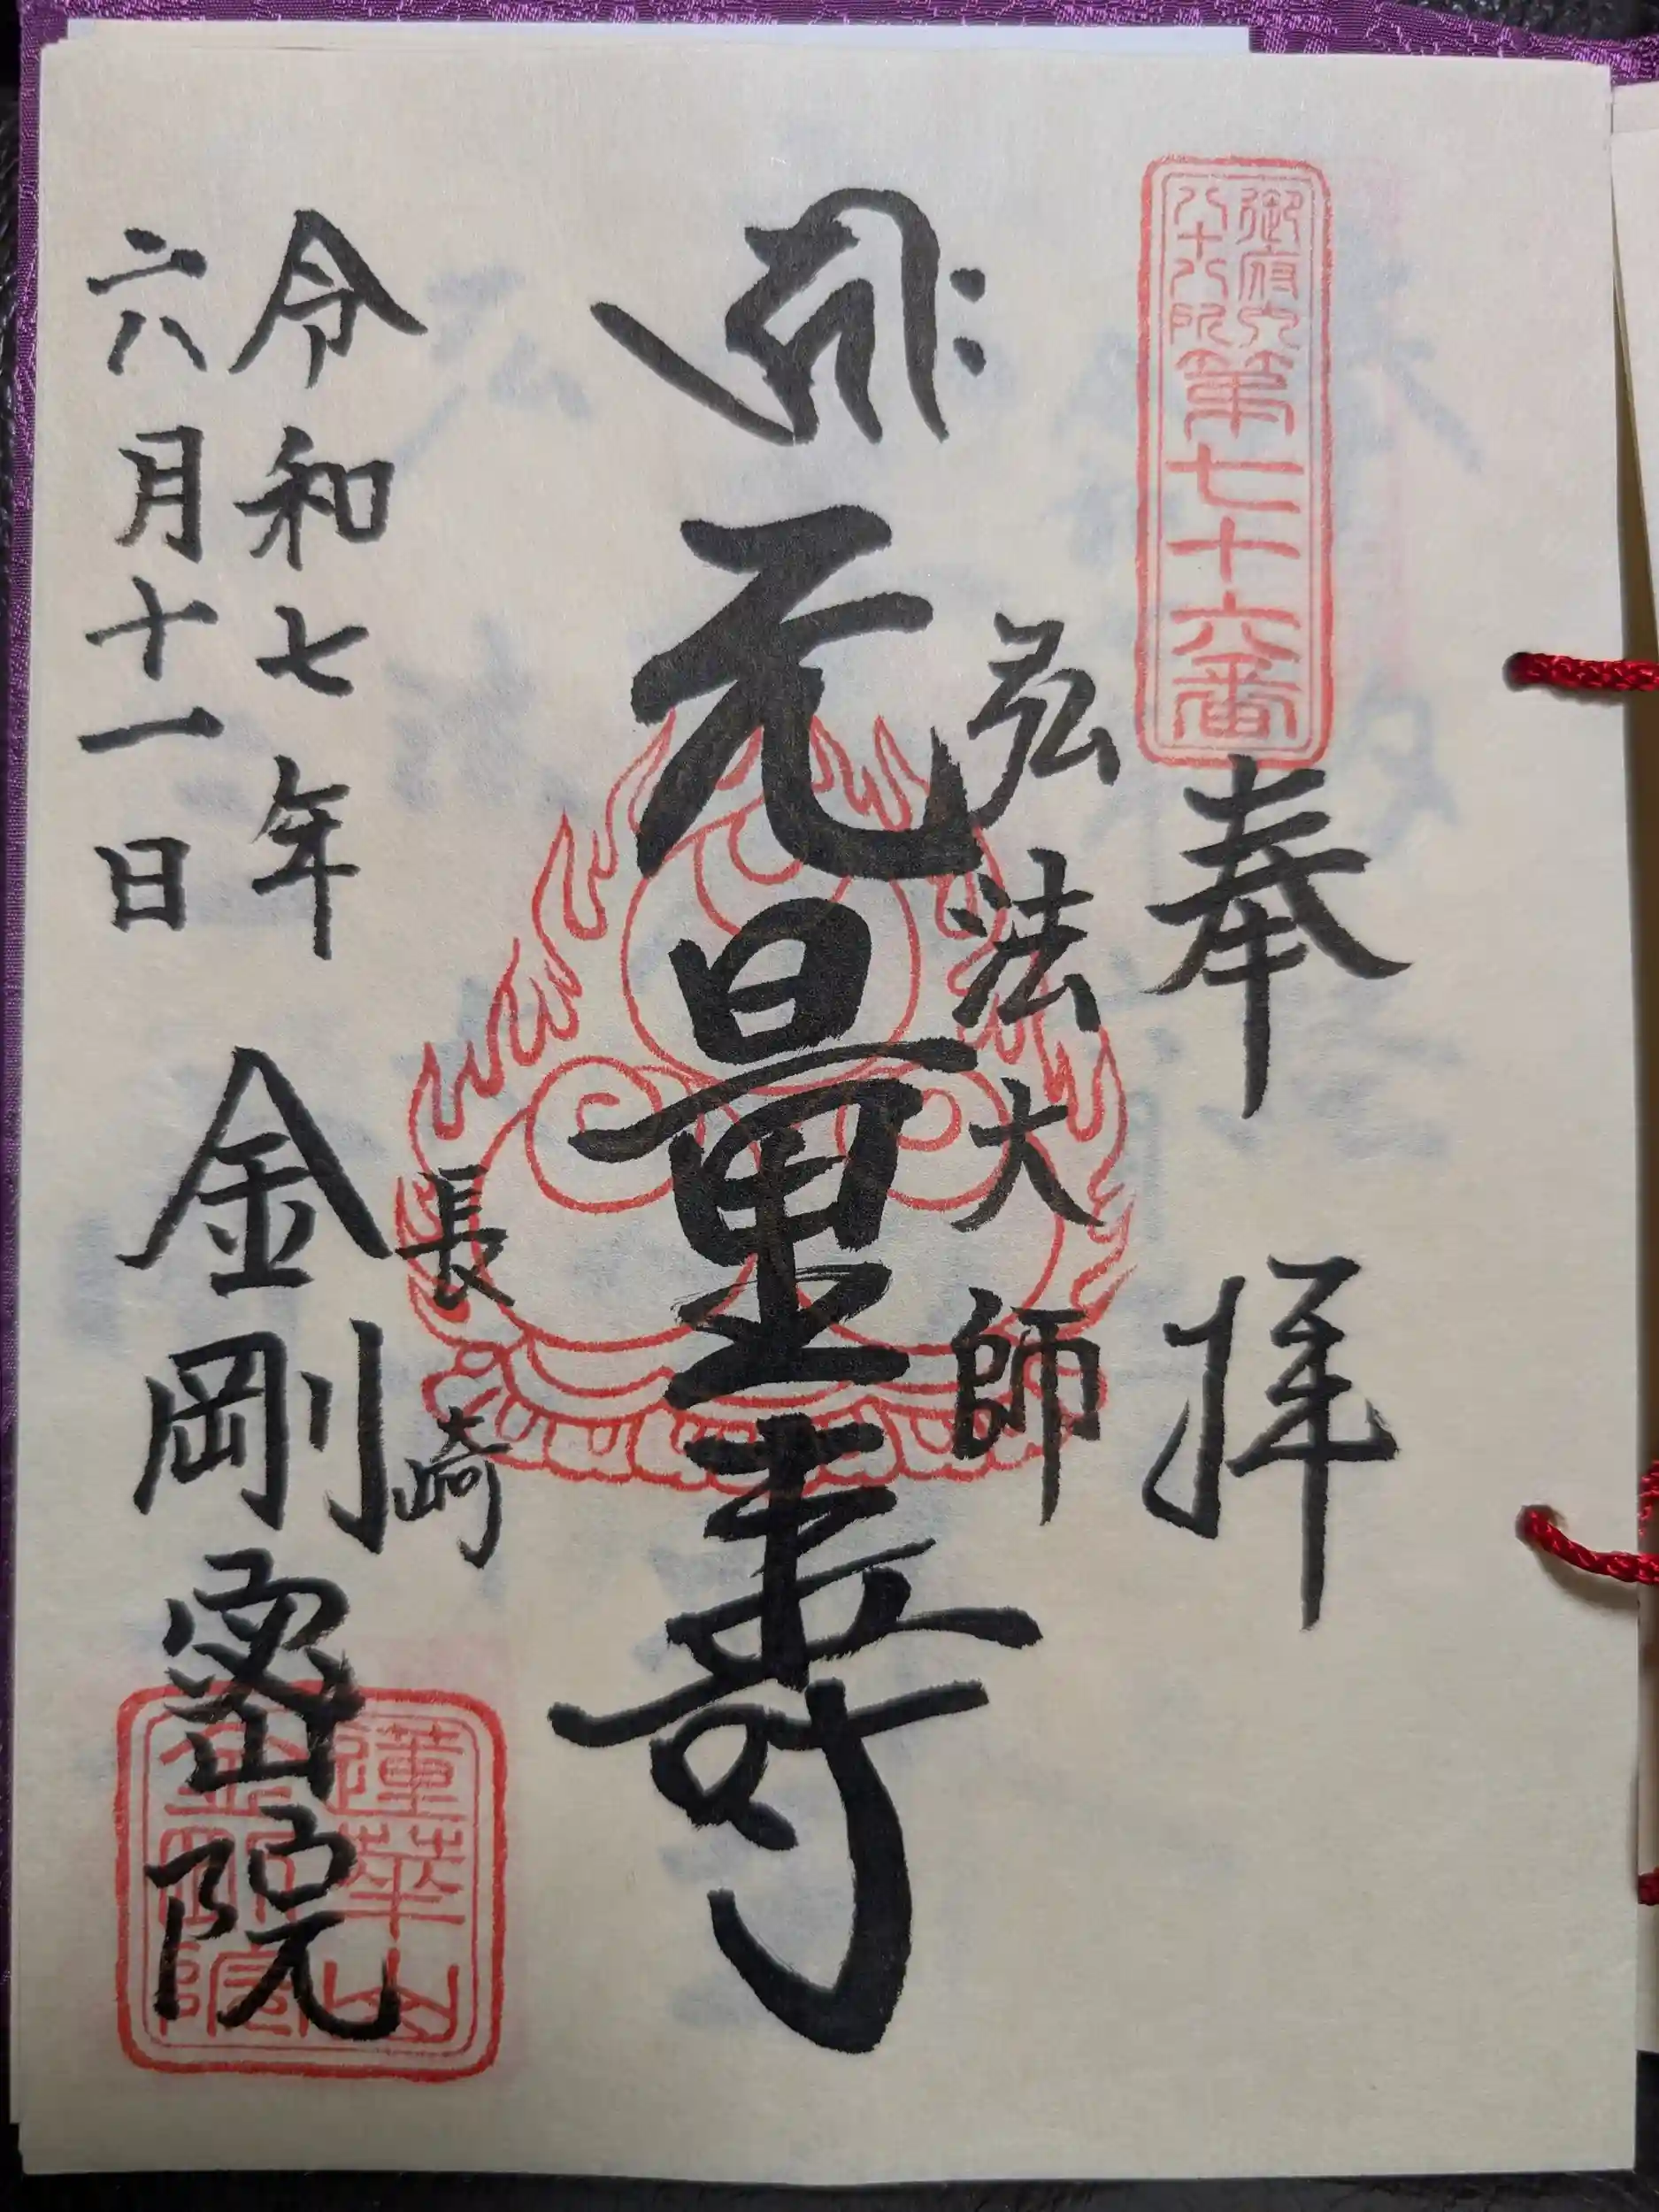 御府内
八十八所
第七十六番
奉拝
弘法大師
无量壽
長崎
令和七年
六月十一日
金剛密院
蓮華山
金剛院